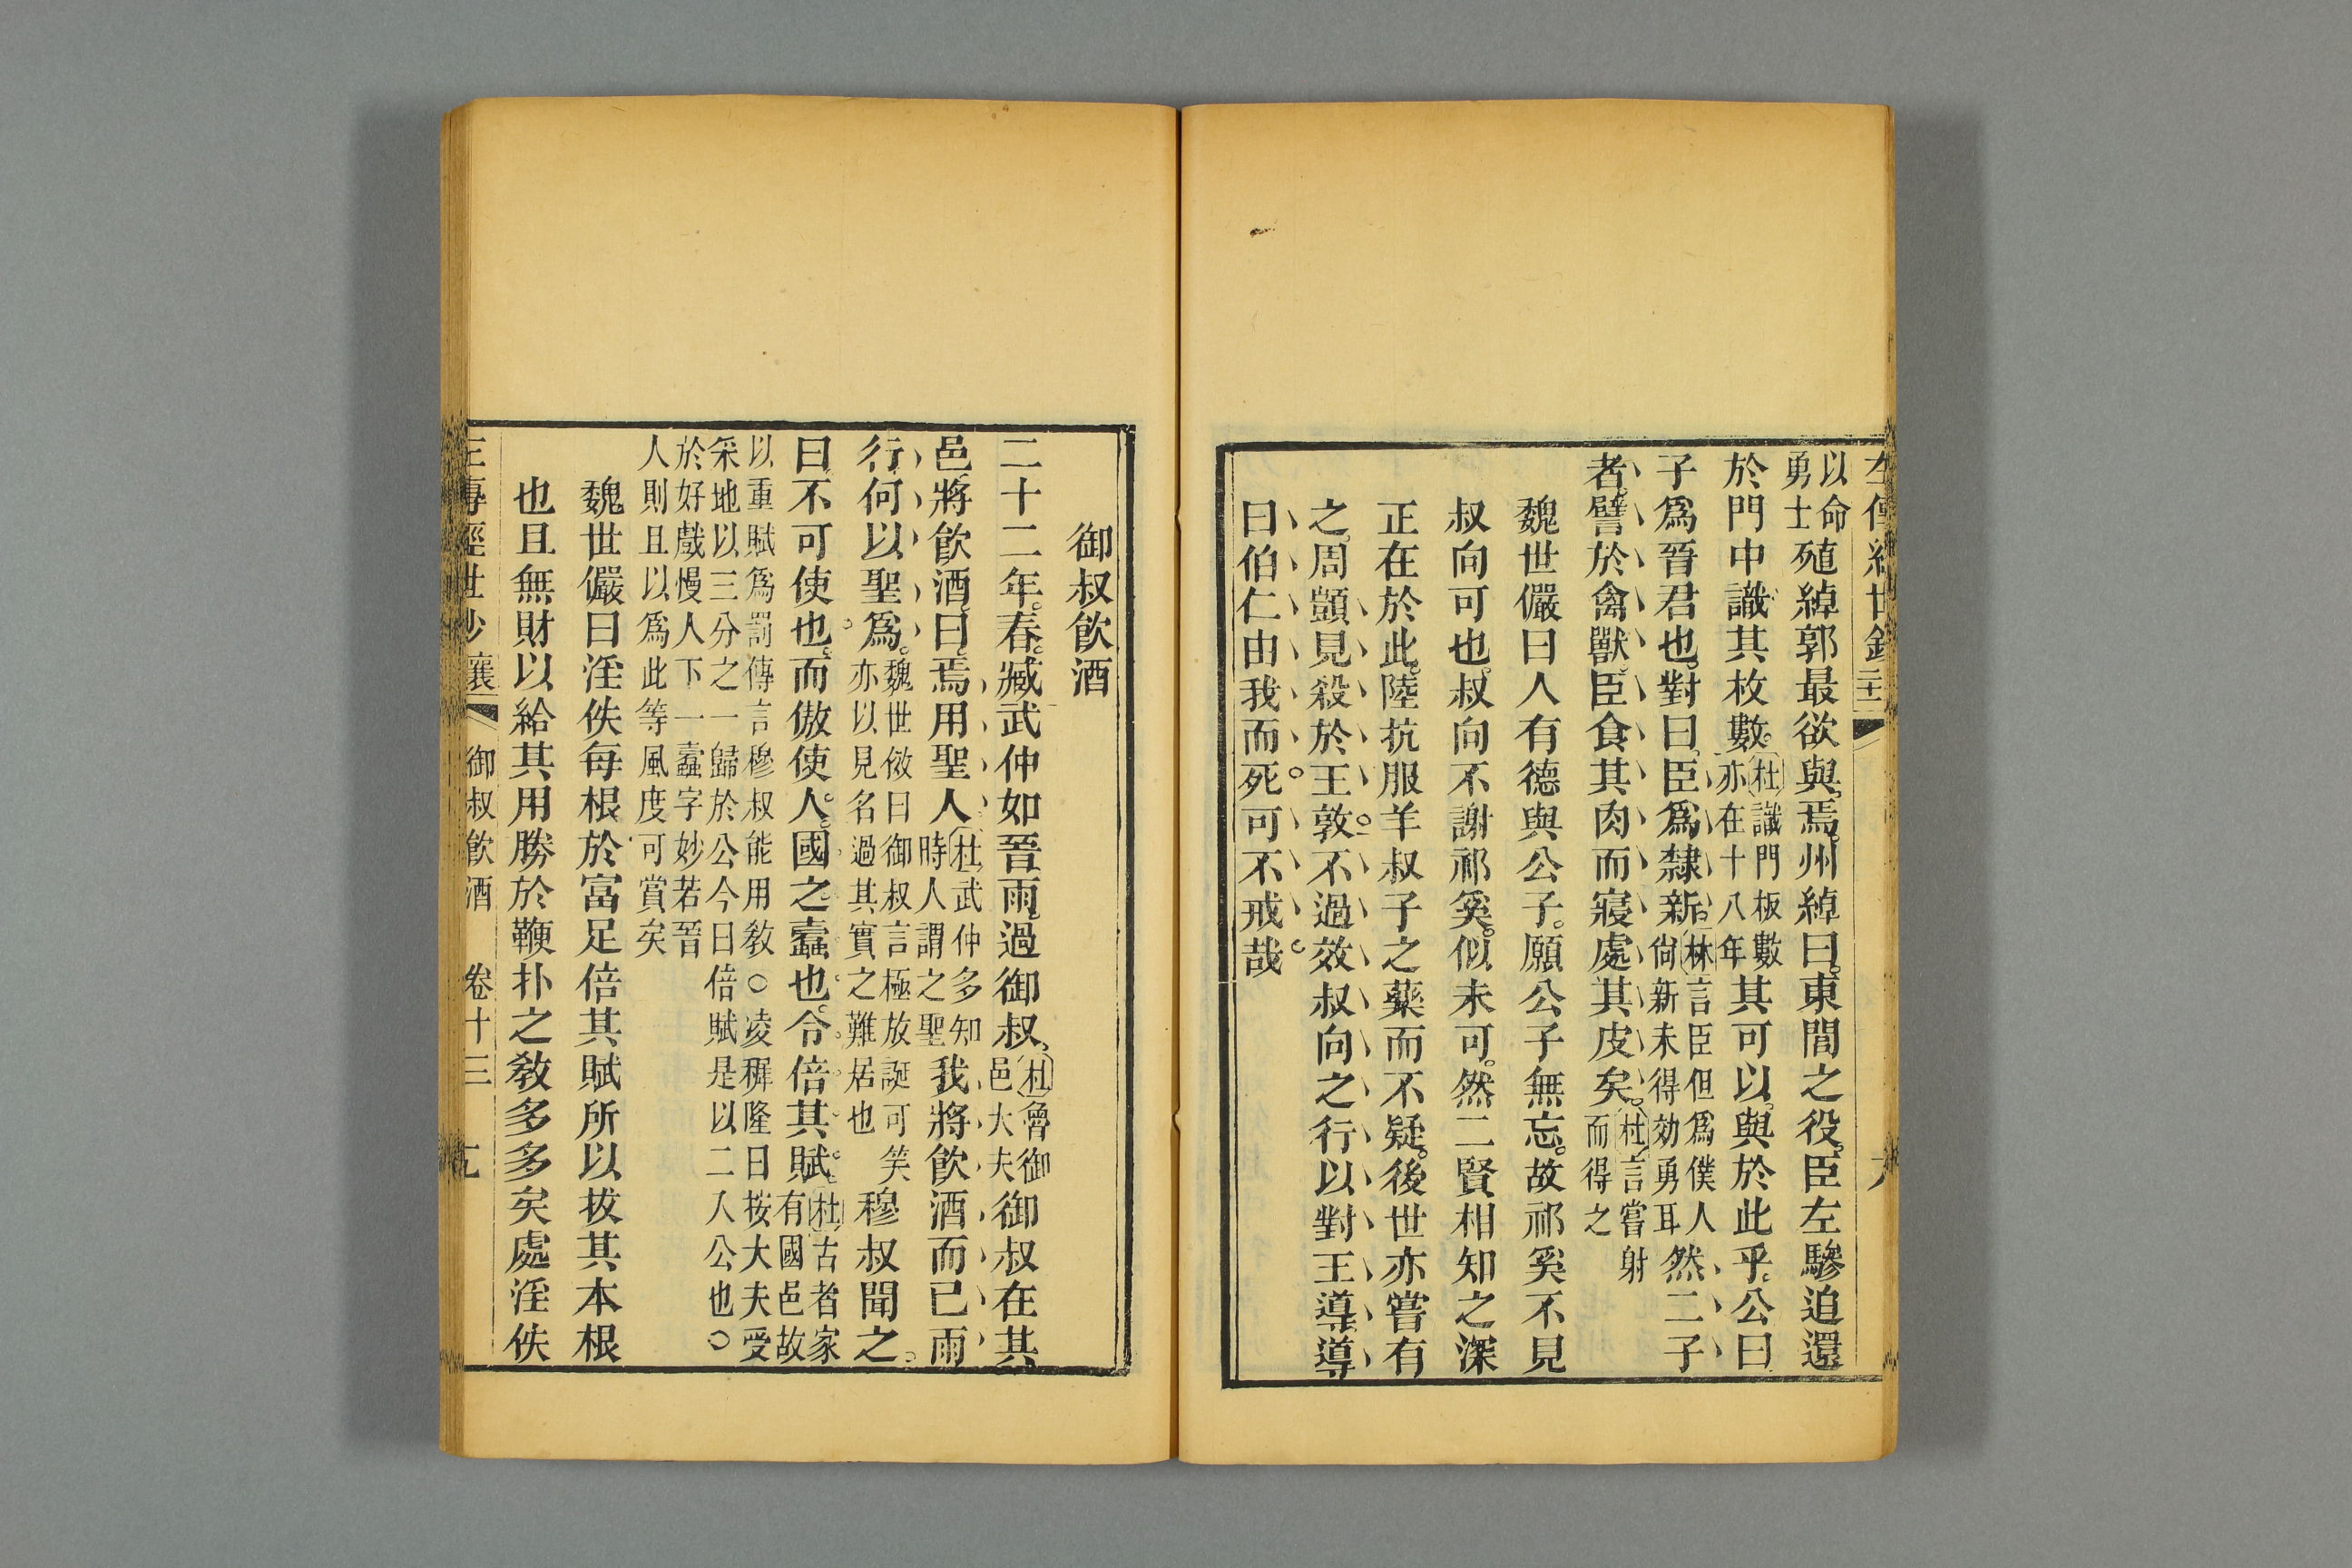 左傳經世鈔
以命勇士殖綽郭最欲與焉州綽曰東閭之役臣左驂迫還
於門中識其枚數杜識門板數亦在十八年其可以與於此乎公曰
子爲晉君也對曰臣爲隸新林言臣但爲僕人尙新未得効勇耳然二子
者譬於禽獸臣食其肉而寢處其皮矣杜言嘗射而得之
魏世儼曰人有德與公子願公子無忘故祁奚不見
叔向可也叔向不謝祁奚似未可然二賢相知之深
正在於此陸抗服羊叔子之藥而不疑後世亦嘗有
之周顗見殺於王敦不過效叔向之行以對王導導
曰伯仁由我而死可不戒哉
御叔飮酒
二十二年春臧武仲如晉雨過御叔杜魯御邑大夫御叔在其
邑將飮酒曰焉用聖人杜武仲多知時人謂之聖我將飮酒而已雨
行何以聖爲魏世傚曰御叔言極放誕可笑亦以見名過其實之難居也穆叔聞之
曰不可使也而傲使人國之蠧也令倍其賦杜古者家有國邑故
以重賦爲罰傳言穆叔能用敎○凌稺隆曰按大夫受
采地以三分之一歸於公今曰倍賦是以二入公也○
於好戲慢人下一蠧字妙若晉
人則且以爲此等風度可賞矣
魏世儼曰淫佚每根於富足倍其賦所以拔其本根
也且無財以給其用勝於鞭扑之敎多多矣處淫佚
左傳經世鈔 襄 御叔飮酒 卷十三